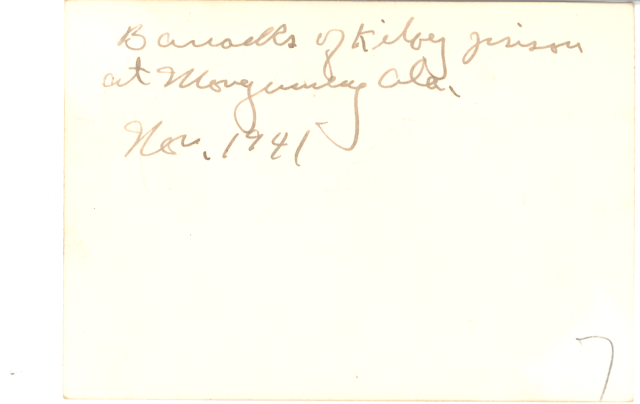 Barracks of Kilby prison
at Montgomery Ala.
Nov. 1941
7